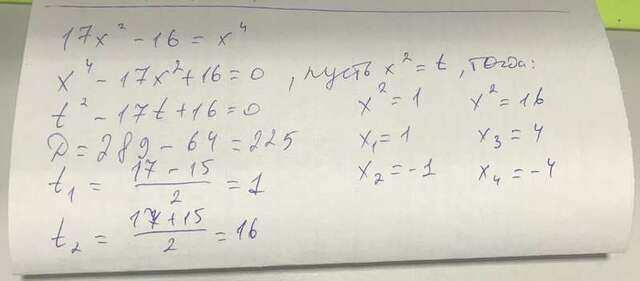 17x² - 16 = x⁴
x⁴ - 17x² + 16 = 0, пусть x² = t, тогда:
t² - 17t + 16 = 0
D = 289 - 64 = 225
t₁ = (17 - 15)/2 = 1
t₂ = (17 + 15)/2 = 16
x² = 1
x₁ = 1
x₂ = -1
x² = 16
x₃ = 4
x₄ = -4